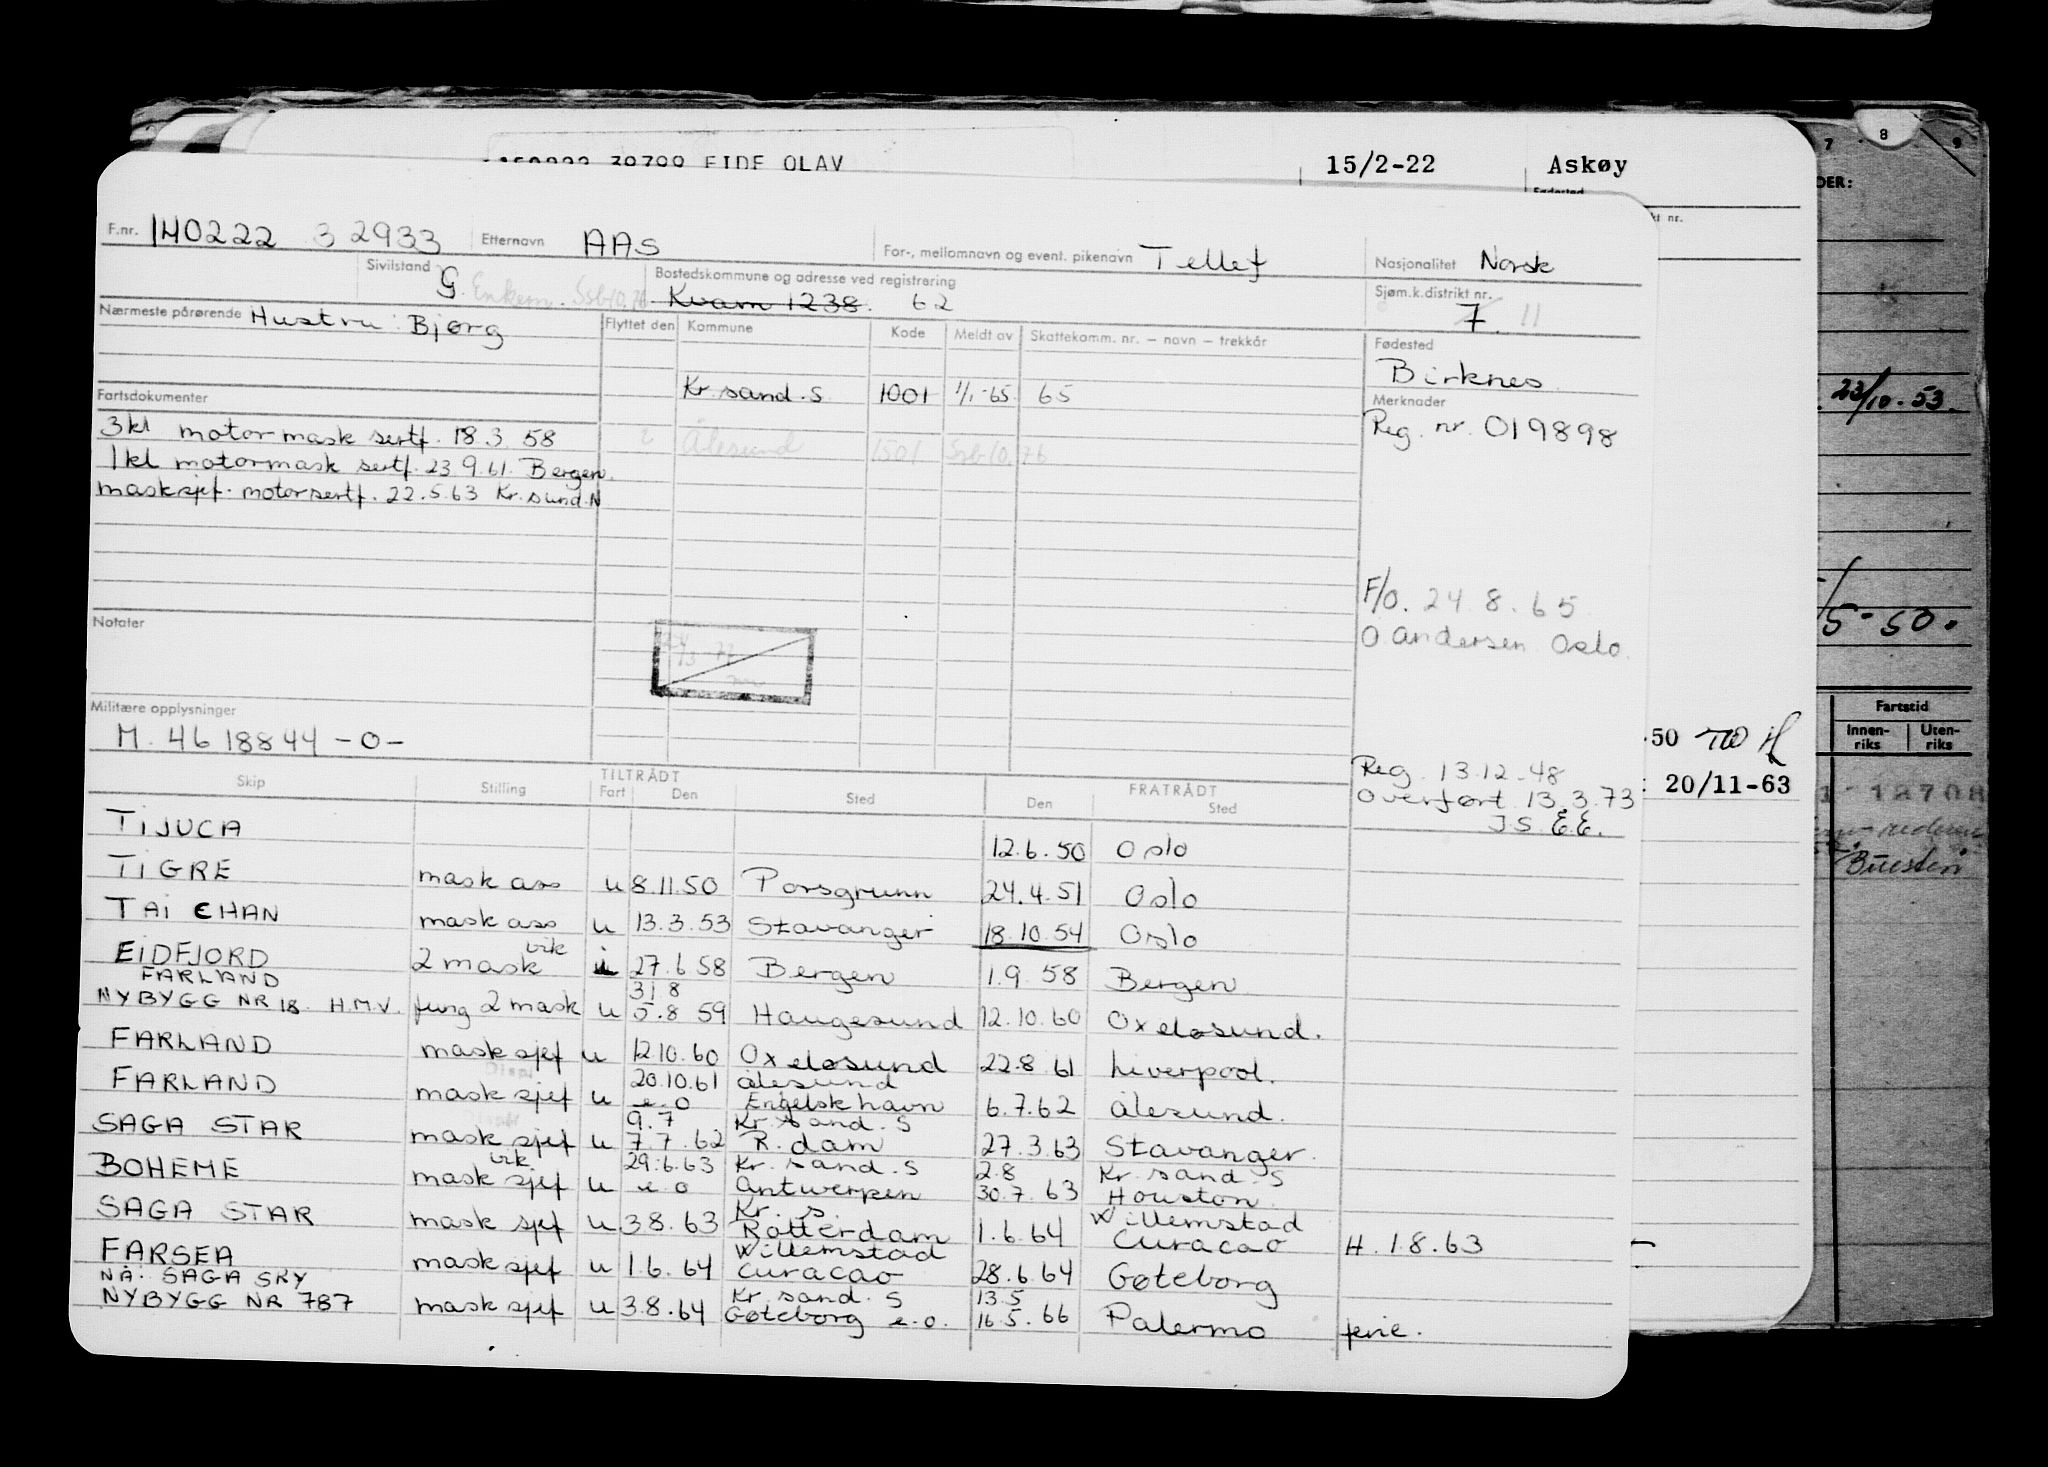 8
7
9
DER:
EIDE OLAV 15/2-22 Askøy
Fødested
kt nr.
F.nr. 140222 32933 Etternavn AAS For-, mellomnavn og event. pikenavn Tellef Nasjonalitet Norsk
Sivilstand G Enkem. Ssb 10.76 Bostedskommune og adresse ved registrering Kvam 1238. 62 Sjøm.k.distrikt nr. 7 11
Nærmeste pårørende Hustru: Bjørg Flyttet den Kommune Kode Meldt av Skattekomm. nr. – navn – trekkår Fødested
Birknes
Kr.sand.S. 1001 1/1-65 65
Fartsdokumenter
Merknader
Reg. nr. 019898
3kl motormask sertf. 18.3.58
Ålesund 1501 Ssb 10.76
1kl motormask sertf. 23.9.61. Bergen.
masksjef. motorsertf. 22.5.63 Kr.sund.N
23/10-53.
F/O. 24.8.65
O Andersen Oslo.
/5-50.
Notater
Militære opplysninger
M. 4618844 -0-
Reg. 13.12-48
Overført 13.3.73
JS. E.E.
-50
20/11-63
Fartstid
Innen-riks Uten-riks
Skip Stilling TILTRÅDT Fart Den Sted FRATRÅDT Den Sted
TIJUCA 12.6.50 Oslo
TIGRE mask ass u 8.11.50 Porsgrunn 24.4.51 Oslo
TAI CHAN mask ass u 13.3.53 Stavanger 18.10.54 Oslo
EIDFJORD 2 mask vik i 27.6.58 Bergen 1.9.58 Bergen
FARLAND 31.8
NYBYGG NR 18. H.M.V. fung 2 mask u 5.8 59 Haugesund 12.10.60 Oxeløsund.
FARLAND mask sjef u 12.10.60 Oxeløsund 22.8.61 Liverpool.
20.10.61 Ålesund
FARLAND mask sjef u e.o Engelsk havn 6.7.62 Ålesund.
9.7 Kr.sand.S
SAGA STAR mask sjef u 7.7.62 R.dam 27.3.63 Stavanger.
vik 29.6.63 Kr.sand.S 2.8 Kr.sand.S
BOHEME mask sjef u e.o Antwerpen 30.7.63 Houston
Kr. s. Willemstad
SAGA STAR mask sjef u 3.8.63 Rotterdam 1.6.64 Curacao H. 1.8.63
Willemstad
FARSEA mask sjef u 1.6.64 Curacao 28.6.64 Gøteborg
NÅ. SAGA SKY Kr.sand.S 13.5
NYBYGG NR 787 mask sjef u 3.8.64 Gøteborg e.o. 16.5.66 Palermo ferie.